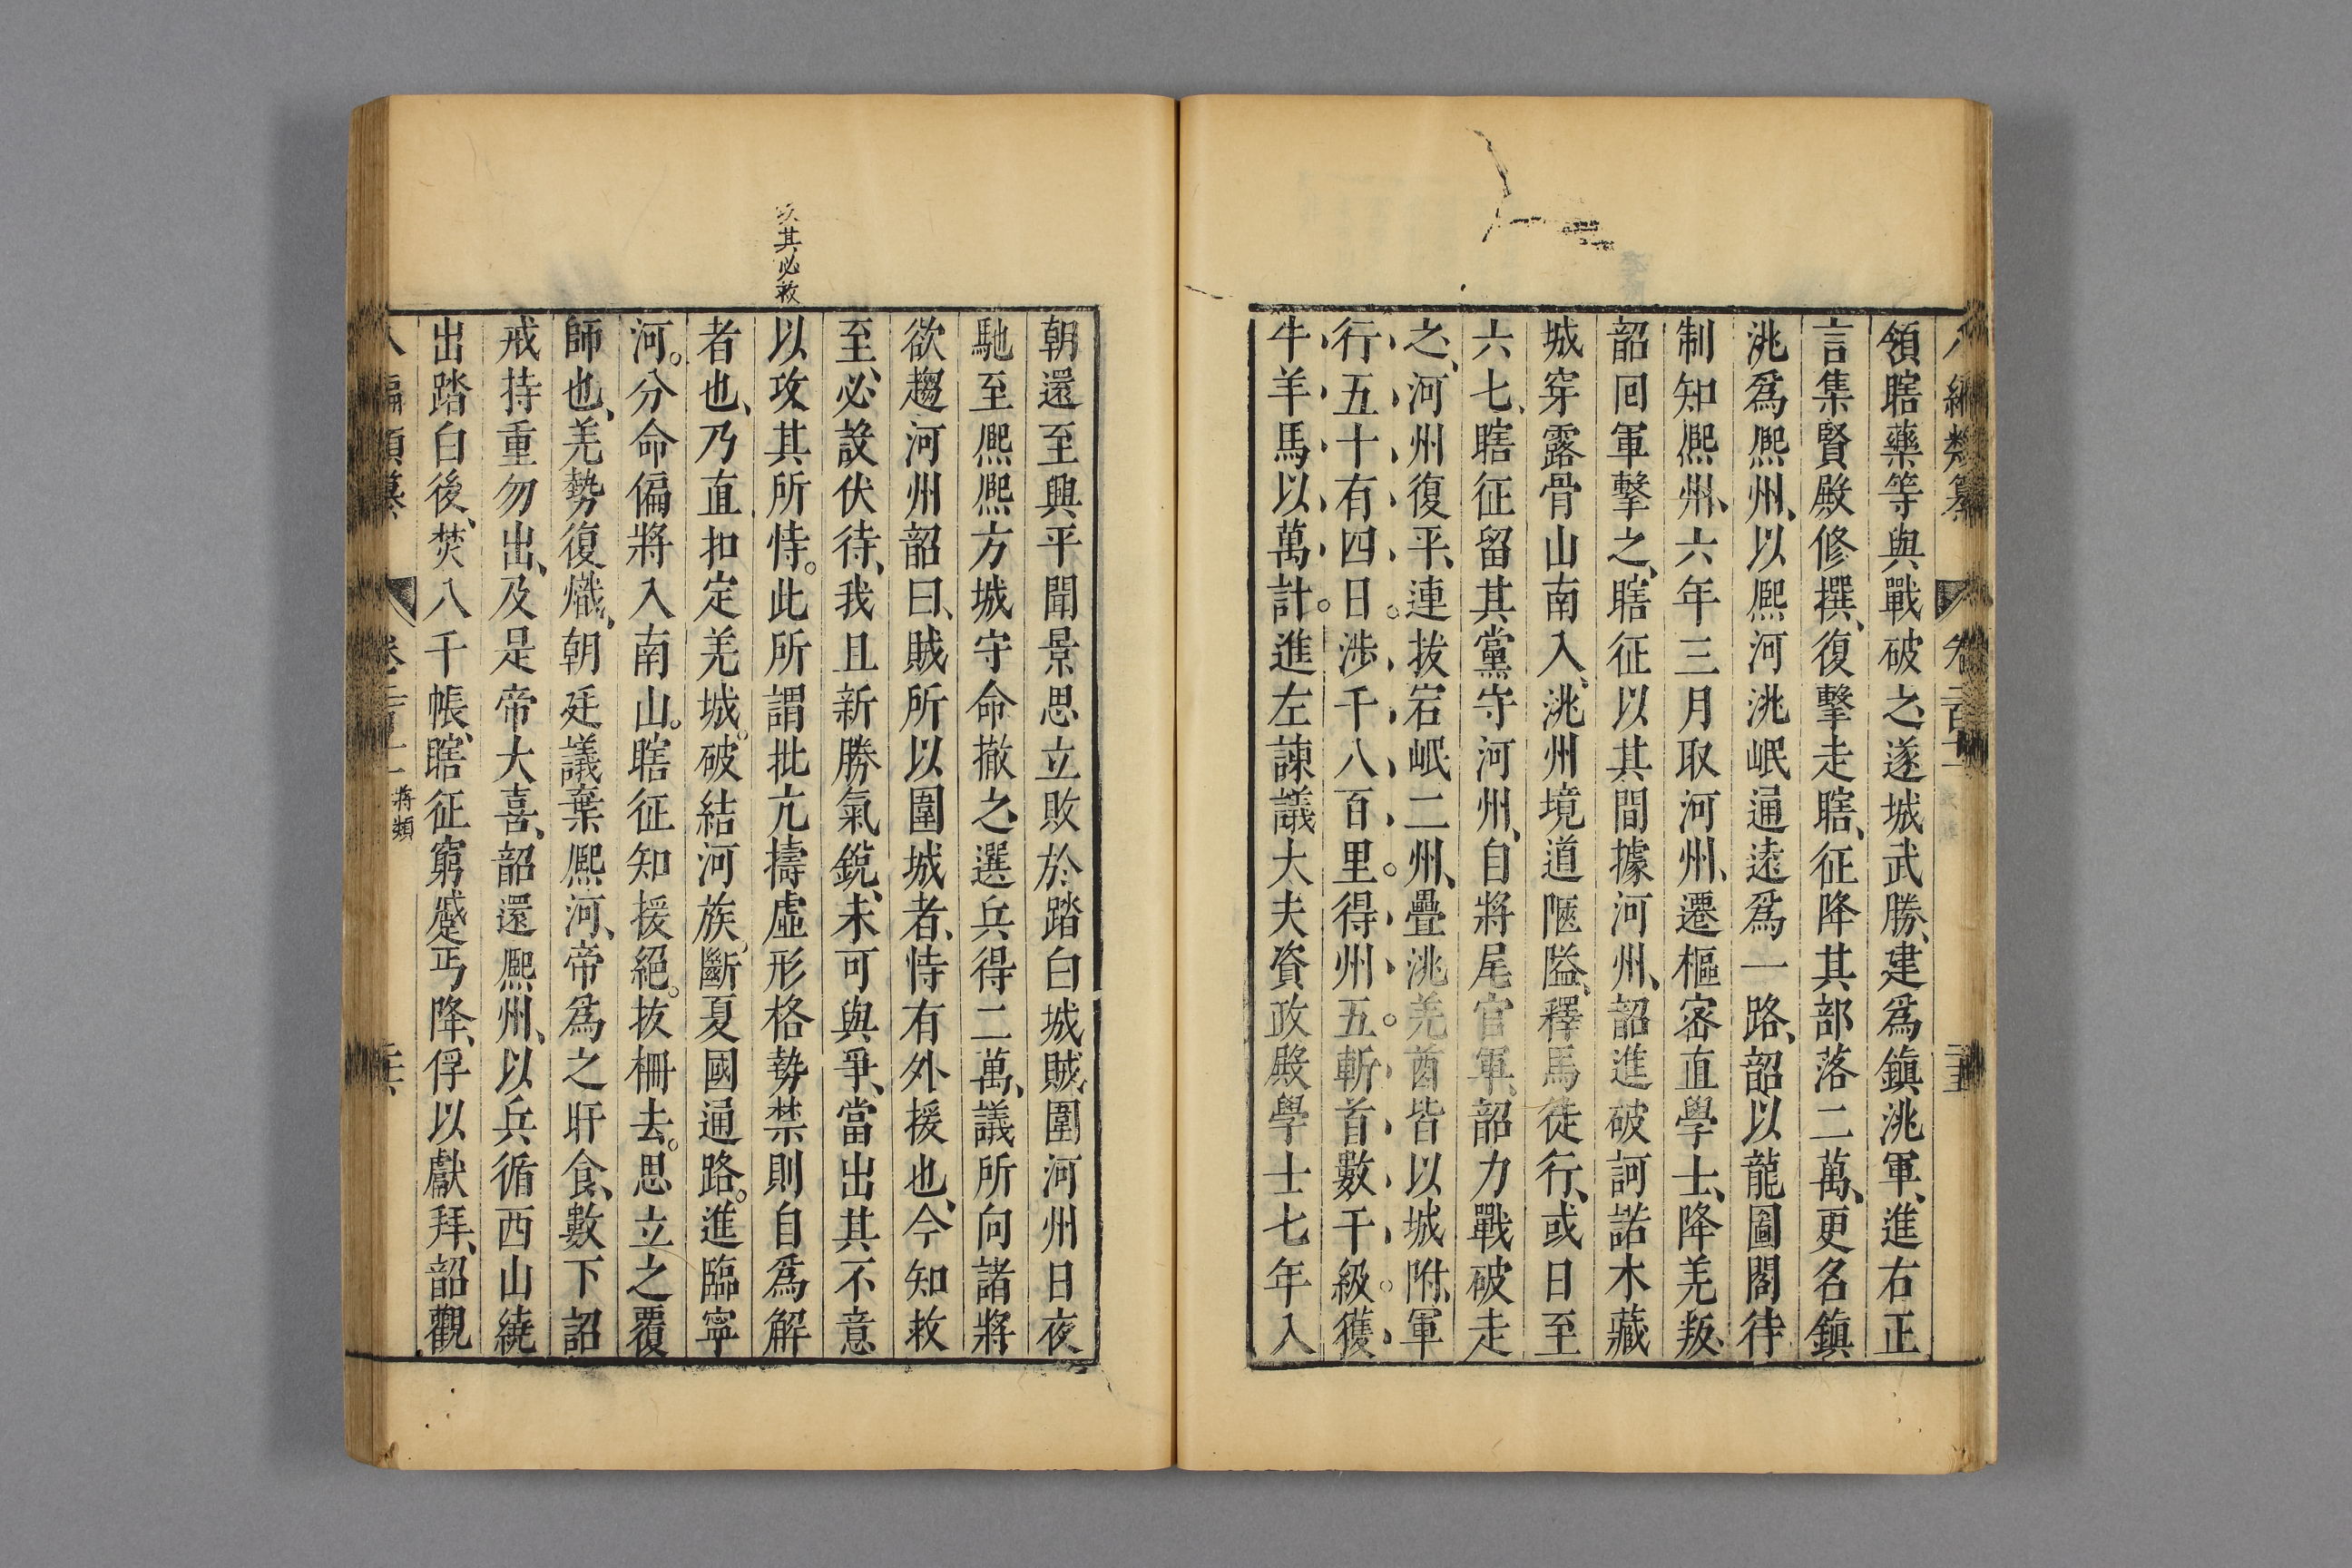 領瞎藥等與戰破之遂城武勝、建爲鎮洮軍、進右正
言集賢殿修撰、復擊走瞎、征降其部落二萬、更名鎮
洮爲熈州、以熈河洮岷通遠爲一路、韶以龍圖閣待
制知熈州、六年三月取河州、遷樞密直學士、降羌叛、
韶囘軍擊之、瞎征以其間據河州、韶進破訶諾木藏
城穿露骨山南入、洮州境道陿隘、釋馬徒行、或日至
六七、瞎征留其黨守河州、自將尾官軍、韶力戰破走
之、河州復平、連拔宕岷二州、疊洮羌酋皆以城附、軍
行五十有四日。涉千八百里。得州五。斬首數千級。獲
牛羊馬以萬計。進左諫議大夫資政殿學士七年入
朝還至興平聞景思立敗於踏白城賊圍河州日夜
馳至熈熈方城守命撤之選兵得二萬、議所向諸將
欲趨河州韶曰、賊所以圍城者、恃有外援也、今知救
至、必設伏待、我且新勝氣銳、未可與爭、當出其不意
以攻其所恃。此所謂批亢擣虛形格勢禁則自爲解
者也、乃直扣定羌城。破結河族、斷夏國通路。進臨寧
河。分命偏將入南山。瞎征知援絕。拔柵去。思立之覆
師也、羌勢復熾、朝廷議棄熈河、帝爲之旰食、數下詔
戒持重勿出、及是帝大喜、韶還熈州、以兵循西山繞
出踏白後、焚八千帳、瞎征窮蹙丐降、俘以獻拜、韶觀
攻其必救
編類纂
卷
蔣類